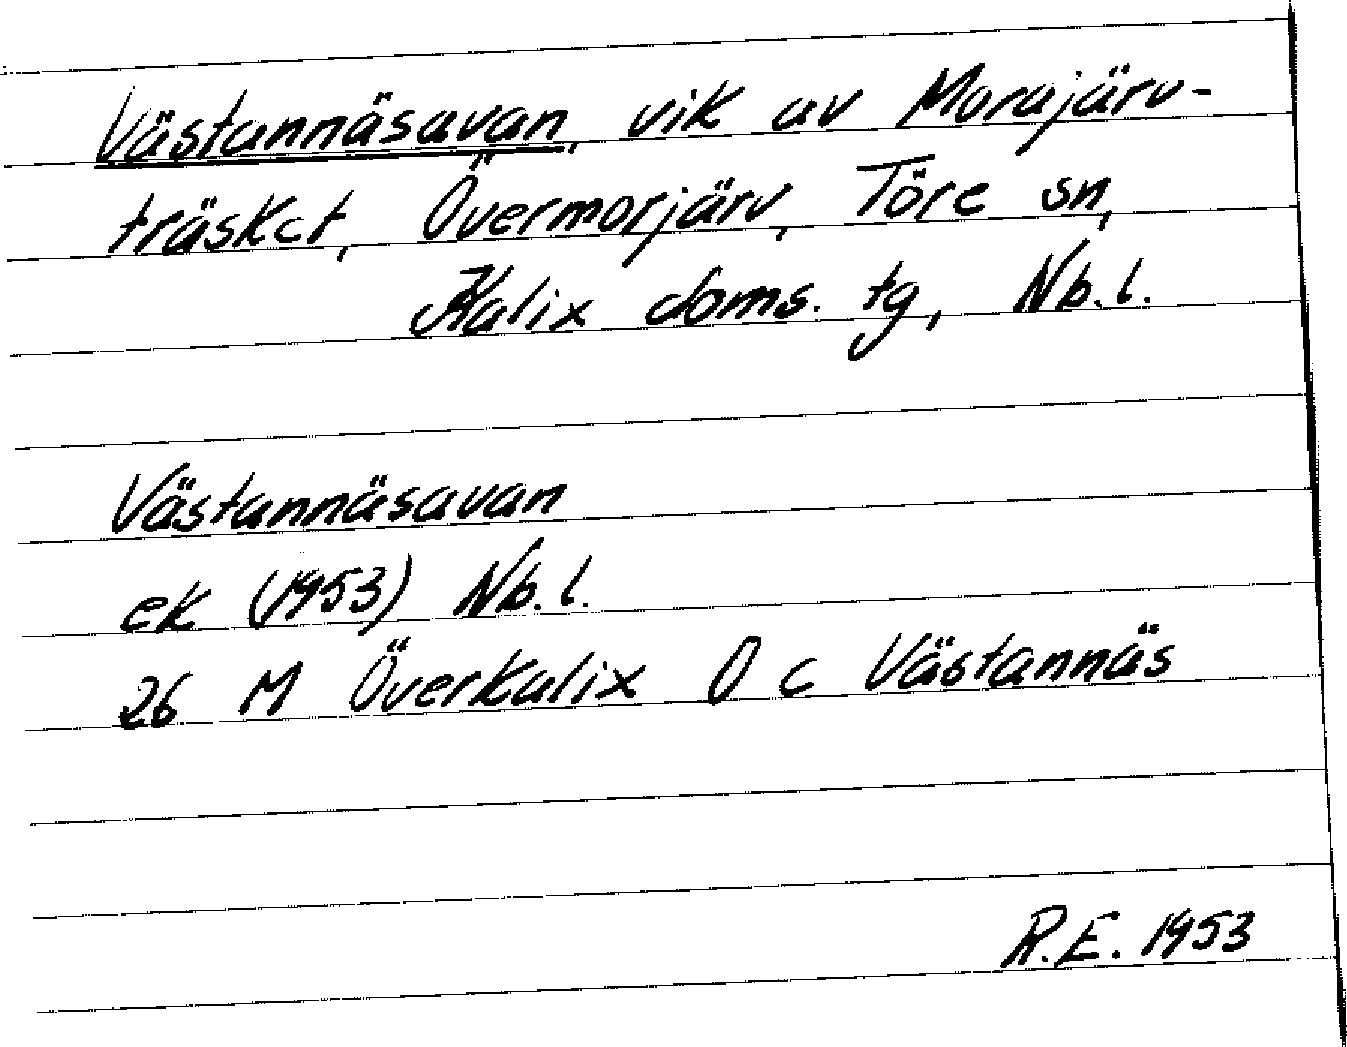 Västannäsavan, vik av Morajärv-
träsket, Övermorjärv, Töre sn,
Kalix doms. tg, Nb.l.
Västannäsavan
ek (1953) Nb.l.
26 M Överkalix O c Västannäs
R.E. 1953